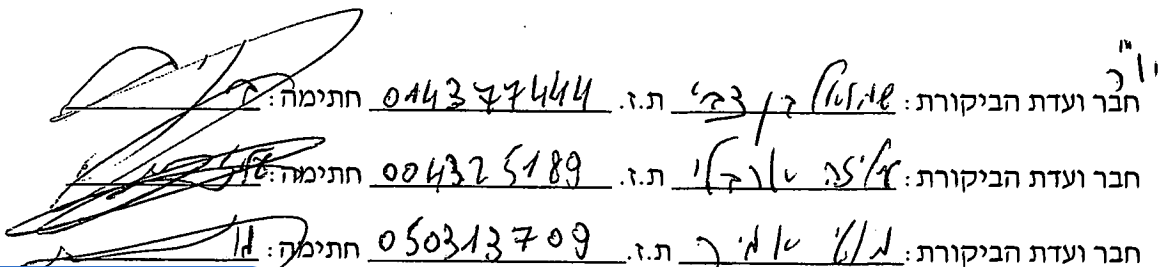 יו"ר
חבר ועדת הביקורת: שמואל בן צבי ת.ז. 014377444 חתימה:
חבר ועדת הביקורת: עליזה ת.ז. 004325189 חתימה:
חבר ועדת הביקורת: אמיר ת.ז. 050313709 חתימה: